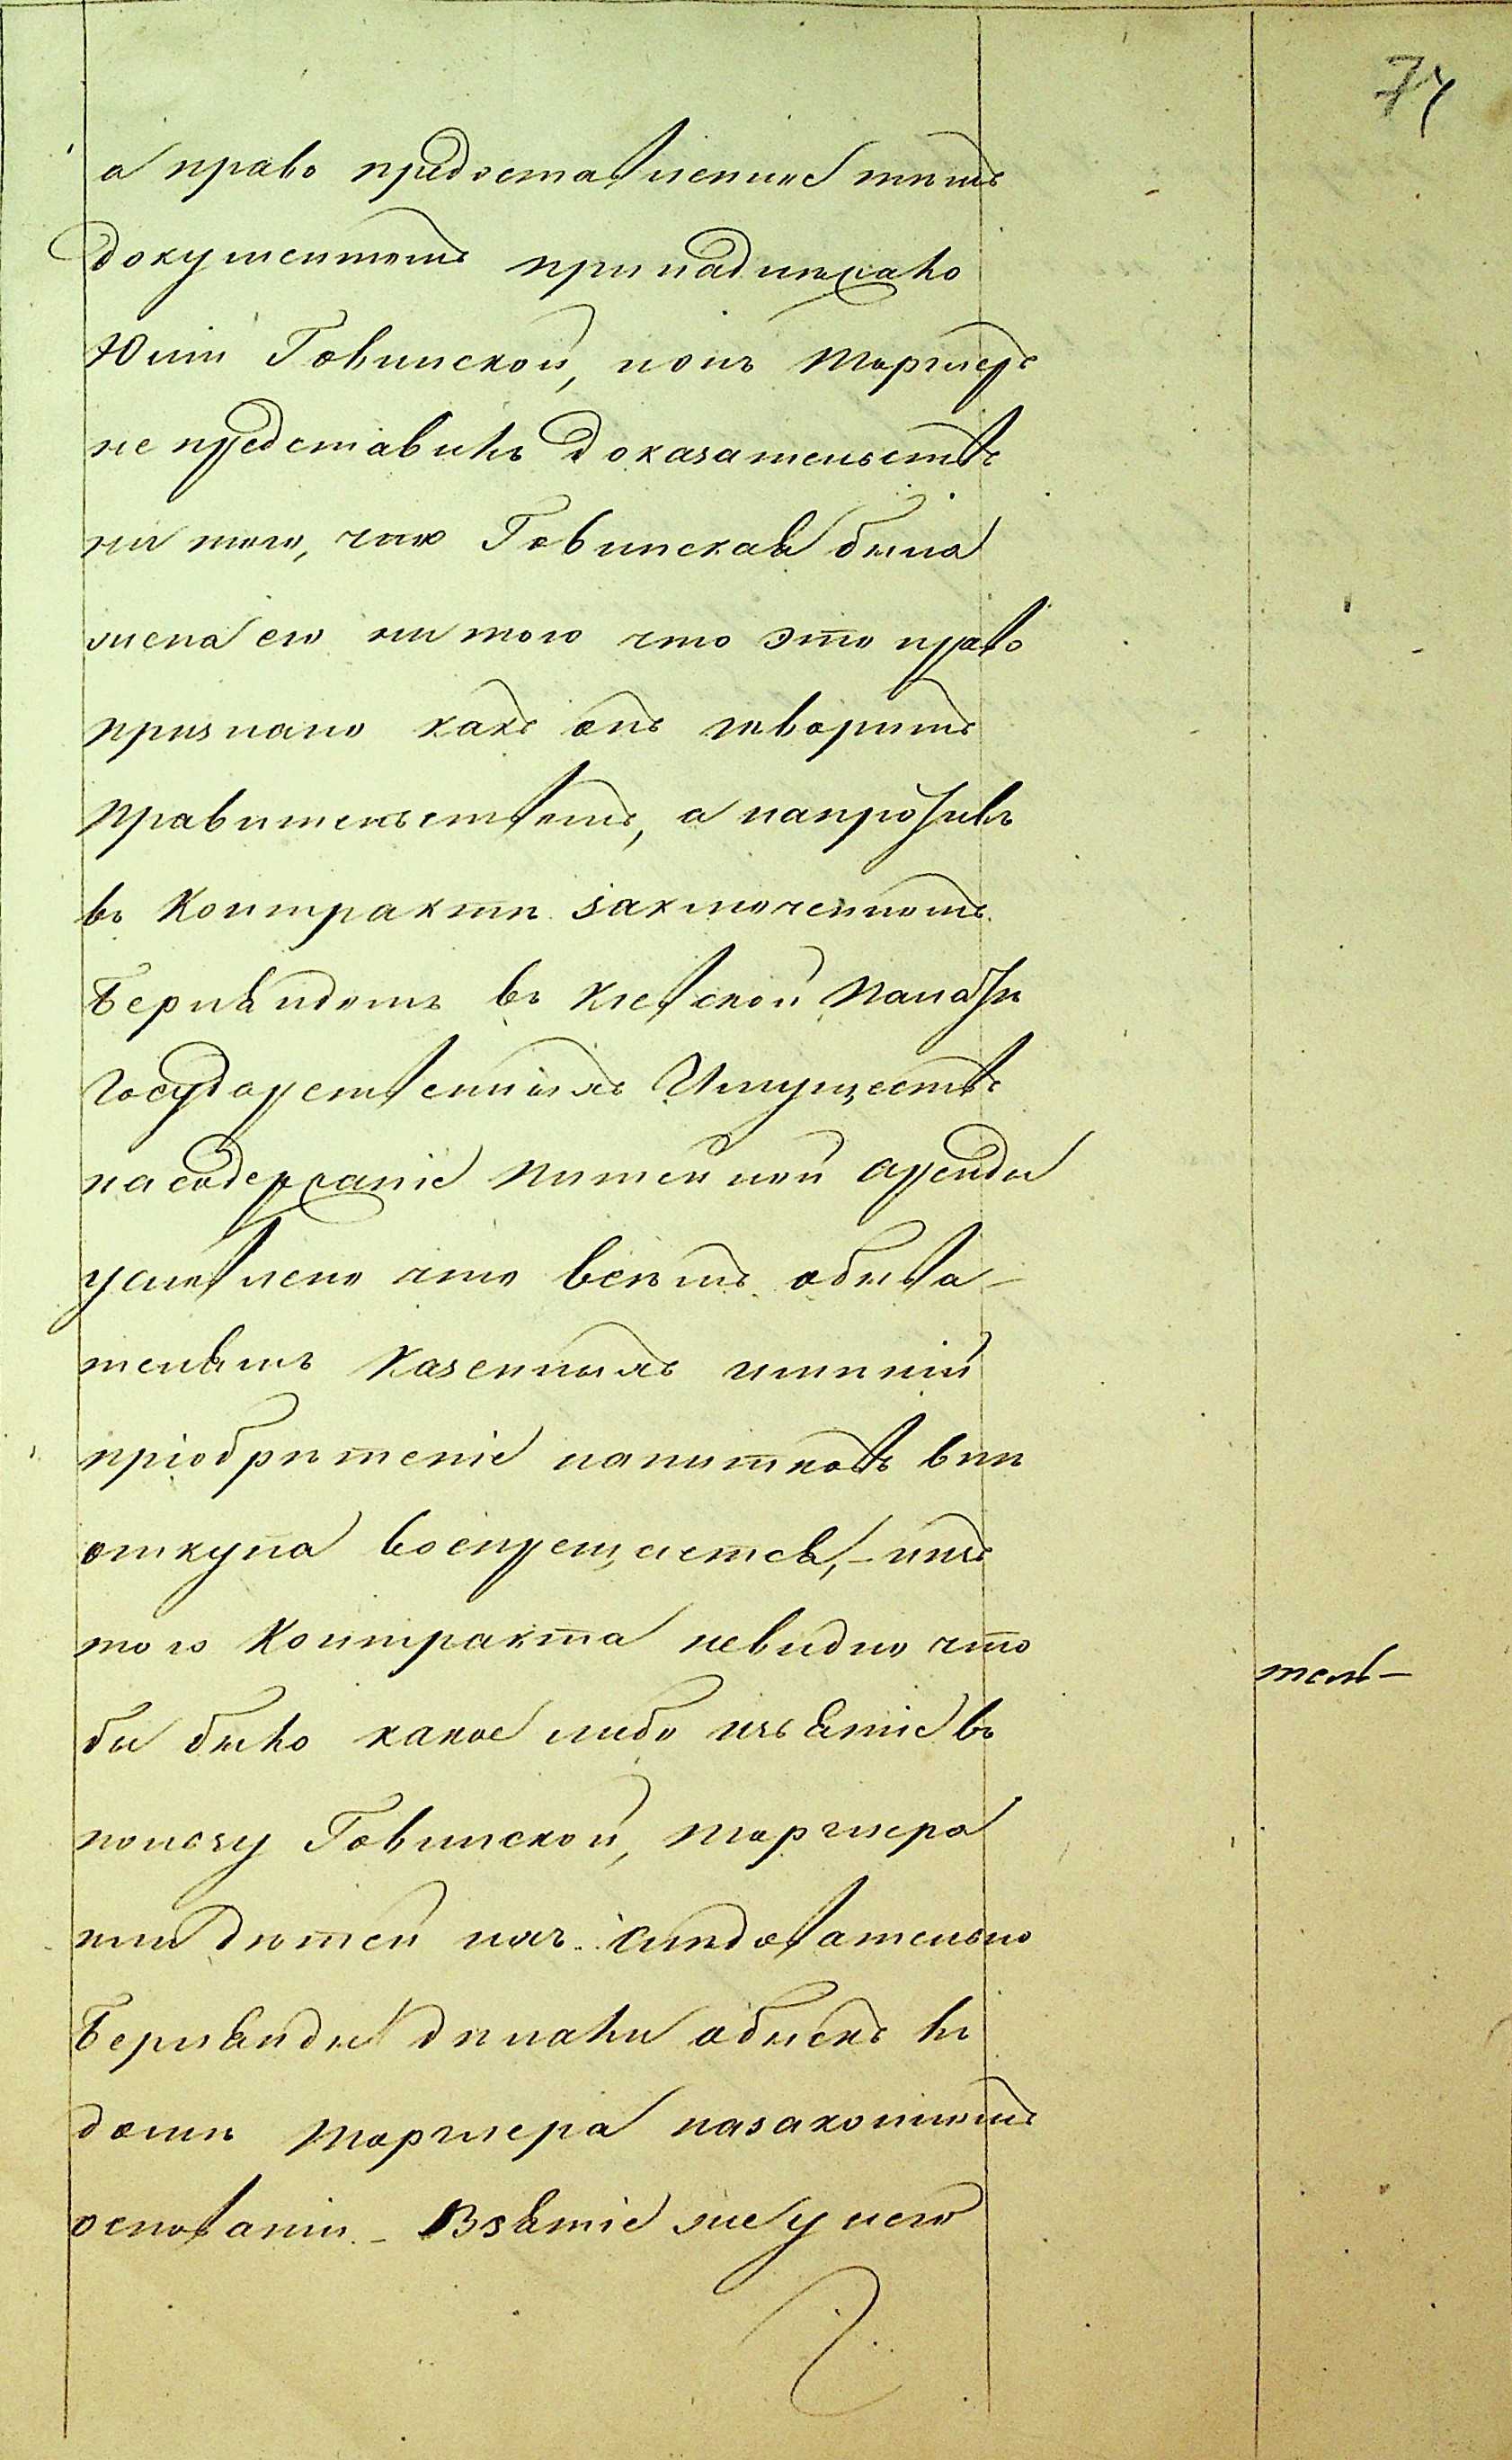 74
а право предоставленное тѣмъ
документомъ принадлежало
Юліи Говинской, ионъ Моргнеръ
не представилъ доказательствъ
ни того, что Говинская была
жена его ни того что это право
признано какъ онъ говоритъ
Правительствомъ, а напротивъ
въ Контрактѣ заключенномъ
Бернандомъ въ Кіевской Палатѣ
Государственныхъ Имуществъ
насодержаніе питейной аренды
условлено что всѣмъ обыва-
телямъ Казенныхъ имѣній
пріобрѣтеніе напитковъ внѣ
откупа воспрещается, - изъ
того Контракта невидно что
бы было какое либо изъятіе въ
пользу Говинской, Моргнера
или дѣтей ихъ. слѣдовательно
тель-
Бернанды дѣлали обыскъ въ
домѣ Моргнера назаконномъ
основаніи. - Взятіе же у него